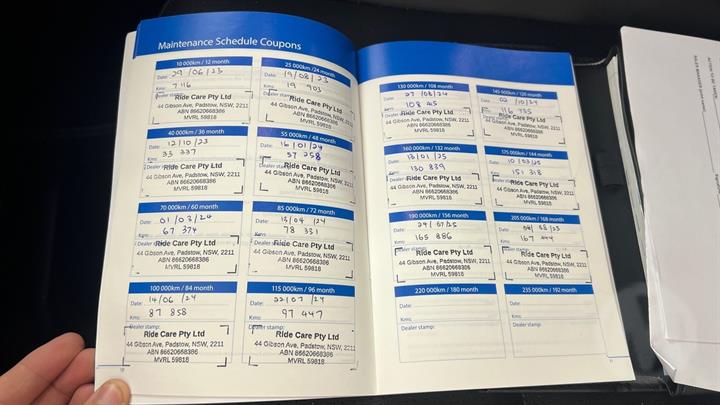 Maintenance Schedule Coupons
10 000km / 12 month
Date: 29 / 06 / 23
Kms: 7 116
Dealer stamp:
Ride Care Pty Ltd
44 Gibson Ave, Padstow, NSW, 2211
ABN 86620668386
MVRL 59818
25 000km / 24 month
Date: 19 / 08 / 23
Kms: 19 903
Dealer stamp:
Ride Care Pty Ltd
44 Gibson Ave, Padstow, NSW, 2211
ABN 86620668386
MVRL 59818
40 000km / 36 month
Date: 12 / 10 / 23
Kms: 33 337
Dealer stamp:
Ride Care Pty Ltd
44 Gibson Ave, Padstow, NSW, 2211
ABN 86620668386
MVRL 59818
55 000km / 48 month
Date: 16 / 01 / 24
Kms: 57 258
Dealer stamp:
Ride Care Pty Ltd
44 Gibson Ave, Padstow, NSW, 2211
ABN 86620668386
MVRL 59818
70 000km / 60 month
Date: 01 / 03 / 24
Kms: 67 374
Dealer stamp:
Ride Care Pty Ltd
44 Gibson Ave, Padstow, NSW, 2211
ABN 86620668386
MVRL 59818
85 000km / 72 month
Date: 13 / 04 / 24
Kms: 78 331
Dealer stamp:
Ride Care Pty Ltd
44 Gibson Ave, Padstow, NSW, 2211
ABN 86620668386
MVRL 59818
100 000km / 84 month
Date: 14 / 06 / 24
Kms: 87 858
Dealer stamp:
Ride Care Pty Ltd
44 Gibson Ave, Padstow, NSW, 2211
ABN 86620668386
MVRL 59818
115 000km / 96 month
Date: 22 / 07 / 24
Kms: 97 447
Dealer stamp:
Ride Care Pty Ltd
44 Gibson Ave, Padstow, NSW, 2211
ABN 86620668386
MVRL 59818
130 000km / 108 month
Date: 27 / 08 / 24
Kms: 108
Dealer stamp:
Ride Care Pty Ltd
44 Gibson Ave, Padstow, NSW, 2211
ABN 86620668386
MVRL 59818
145 000km / 120 month
Date: 02 / 10 / 24
Kms: 116 735
Dealer stamp:
Ride Care Pty Ltd
44 Gibson Ave, Padstow, NSW, 2211
ABN 86620668386
MVRL 59818
160 000km / 132 month
Date: 13 / 01 / 25
Kms: 130 839
Dealer stamp:
Ride Care Pty Ltd
44 Gibson Ave, Padstow, NSW, 2211
ABN 86620668386
MVRL 59818
175 000km / 144 month
Date: 10 / 03 / 25
Kms: 151 318
Dealer stamp:
Ride Care Pty Ltd
44 Gibson Ave, Padstow, NSW, 2211
ABN 86620668386
MVRL 59818
190 000km / 156 month
Date: 24 / 07 / 25
Kms: 165 886
Dealer stamp:
Ride Care Pty Ltd
44 Gibson Ave, Padstow, NSW, 2211
ABN 86620668386
MVRL 59818
205 000km / 168 month
Date: / 08 / 25
Kms: 167 444
Dealer stamp:
Ride Care Pty Ltd
44 Gibson Ave, Padstow, NSW, 2211
ABN 86620668386
MVRL 59818
220 000km / 180 month
Date:
Kms:
Dealer stamp:
235 000km / 192 month
Date:
Kms:
Dealer stamp: